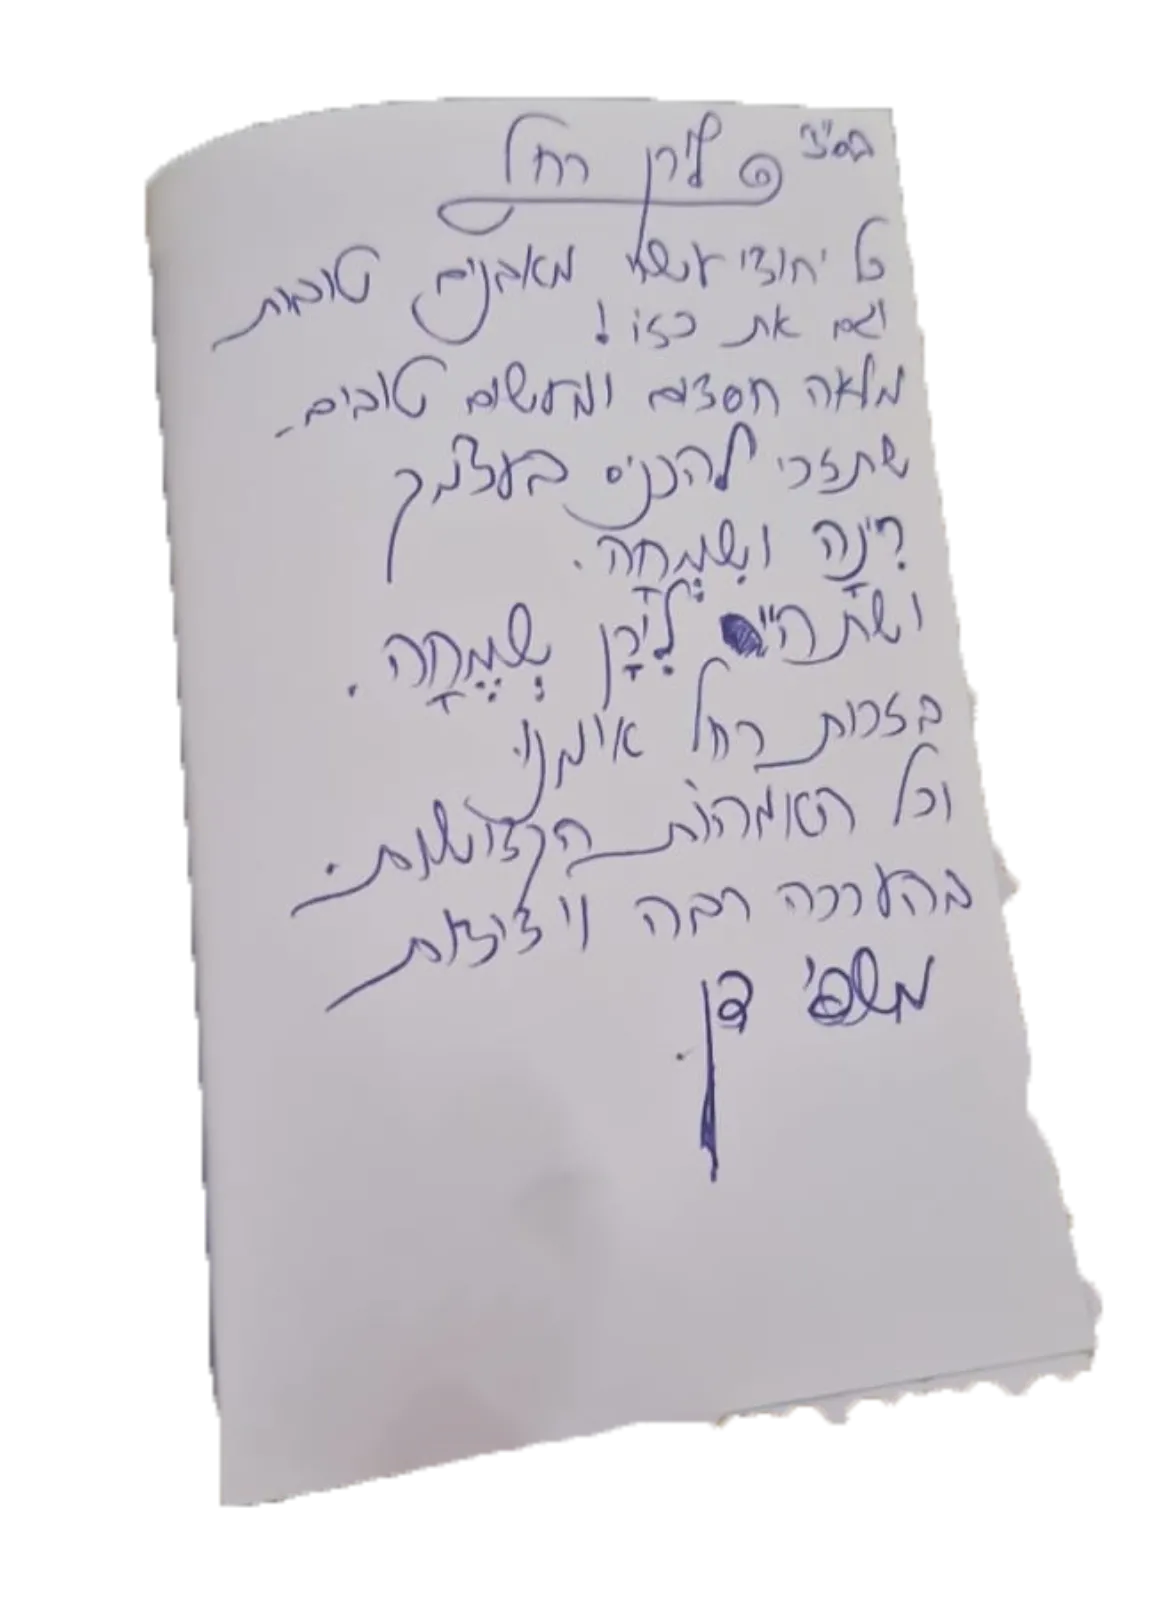 בס"ד
לירן רחל
כל יהודי עשוי מאבנים טובות
וגם את כזו!
מלאה חסדים ומעשים טובים.
שתזכי להכניס בעצמך
רִינָה ושִׂמְחָה.
ושת הי" לִירָן שְׂמֵחָה.
בזכות רחל אימנו
וכל האמהות הקדושות.
בהערכה רבה וידידות
משפ' דן